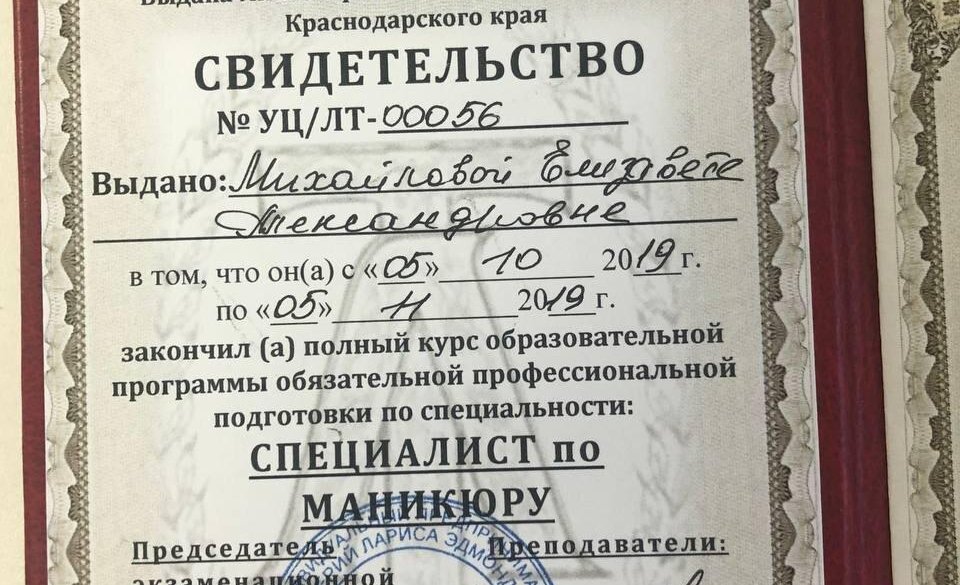 Краснодарского края
СВИДЕТЕЛЬСТВО
№ УЦ/ЛТ-00056
Выдано: Михайловой Елизавете
Александровне
в том, что он(а) с «05» 10 2019 г.
по «05» 11 2019 г.
закончил (а) полный курс образовательной
программы обязательной профессиональной
подготовки по специальности:
СПЕЦИАЛИСТ по
МАНИКЮРУ
Председатель Преподаватели:
экзаменационной
ЛАРИСА ЭДМОНД